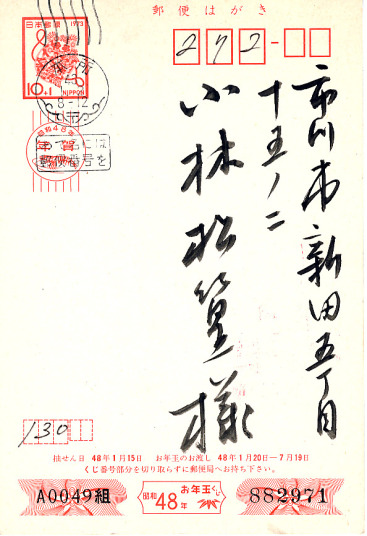 郵便はがき
日本郵便 1973
10+1
NIPPON
8-12
272-
市川市新田五丁目
十五ノ二
小林松篁様
昭和48年
年賀
あて名には
郵便番号を
130
抽せん日 48年1月15日 お年玉のお渡し 48年1月20日-7月19日
くじ番号部分を切り取らずに郵便局へお持ち下さい。
A0049組
昭和48年
お年玉くじ
882971